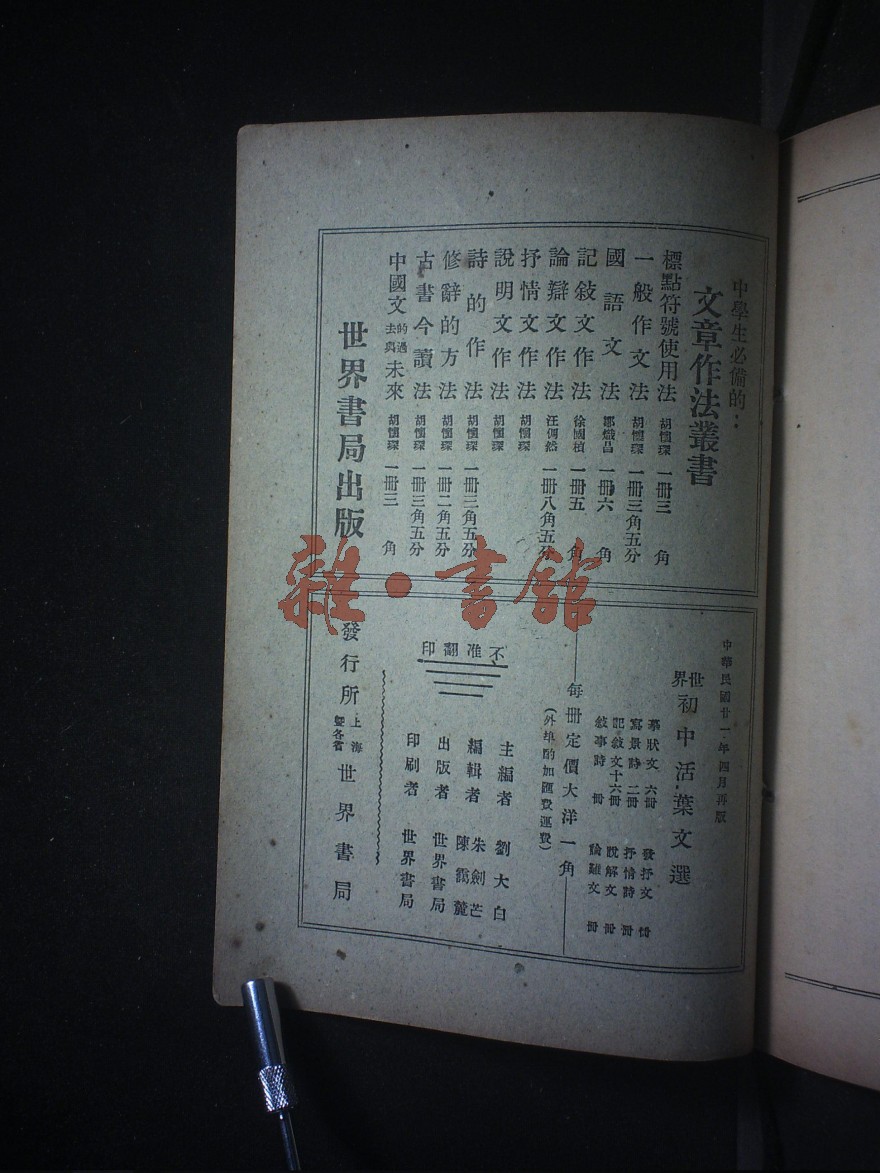 中學生必備的：
文章作法叢書
標點符號使用法 胡懷琛 一冊三角
一般作文法 胡懷琛 一冊三角五分
國語文法 鄒熾昌 一冊六角
記敘文作法 徐國楨 一冊五角
論辯文作法 汪倜然 一冊八角五分
抒情文作法 胡懷琛
說明文作法 胡懷琛
詩的作法 胡懷琛 一冊二角五分
修辭的方法 胡懷琛 一冊二角五分
古書今讀法 胡懷琛 一冊三角五分
中國文的過去與未來 胡懷琛 一冊三角
世界書局出版
雜·書館
中華民國廿一年四月再版
世界初中活葉文選
狀文 六冊 發抒文 冊
寫景詩 二冊 抒情詩 冊
記敘文 十六冊 說解文 冊
敘事詩 冊 論難文 冊
每冊定價大洋一角
(外埠酌加匯費運費)
不准翻印
主編者 劉大白
編輯者 朱劍芒 陳靄麓
出版者 世界書局
印刷者 世界書局
發行所 上海暨各省 世界書局